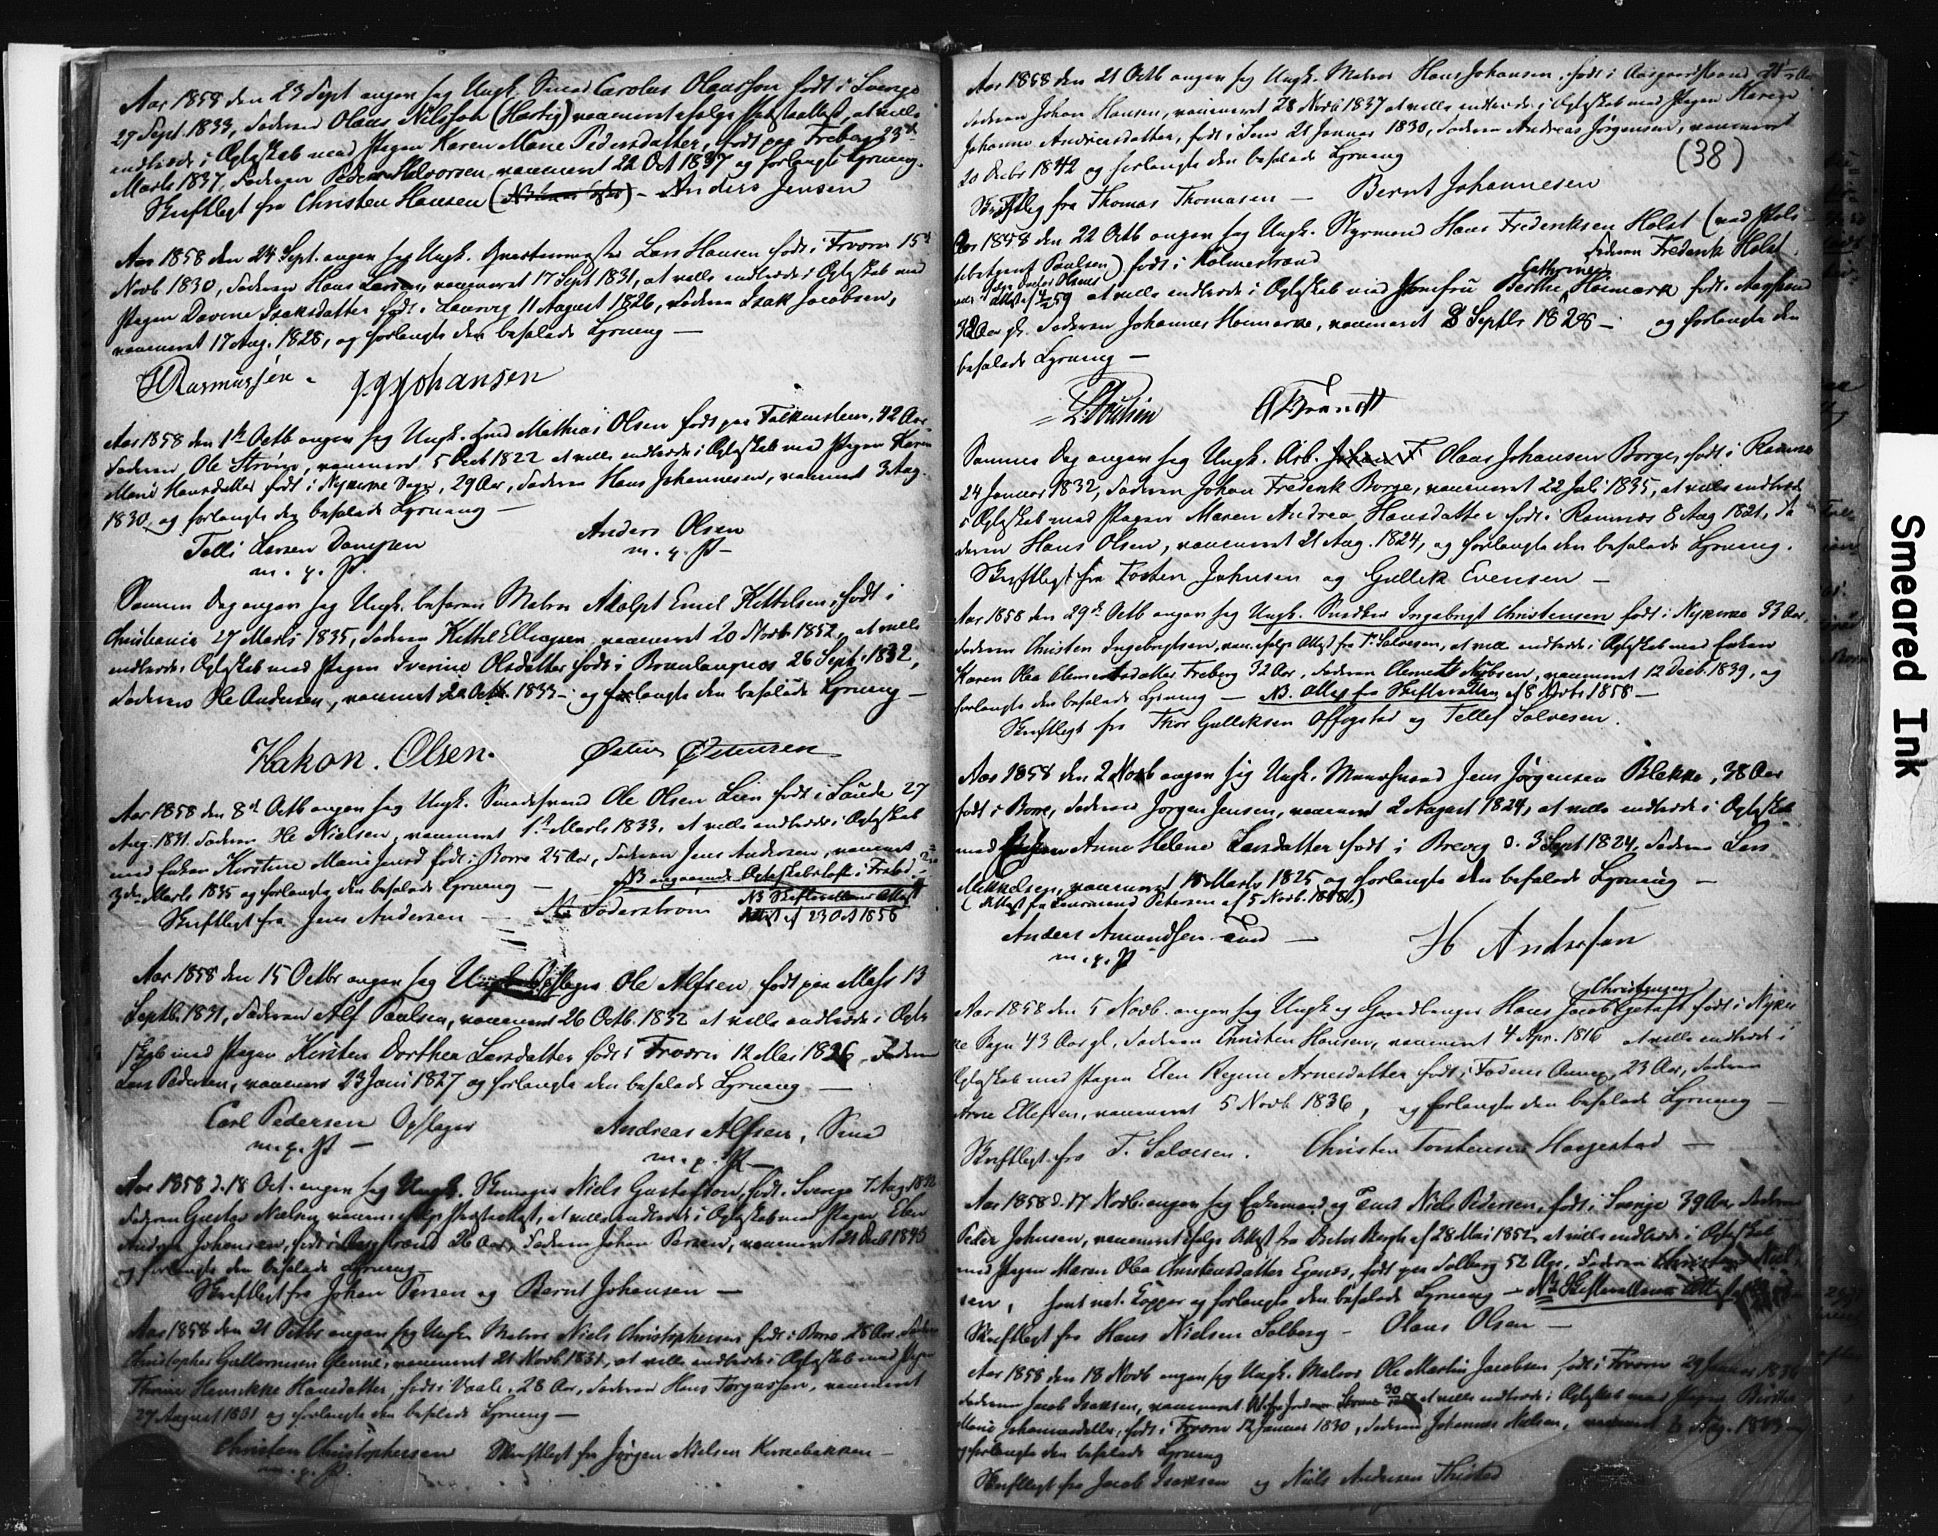 Aar 1858 den 23 Sept angav sig Ungk. Smed Carolus Olausson født i Sverige
27 Sept. 1833, Faderen Olaus Nilsson (Hastig) vaccineret ifølge Præsteattest, at ville
indtræde i Ægteskab med Pigen Karen Marie Pedersdatter, født paa Freberg 23de
Marts 1837, Faderen Peder Halvorsen, vaccineret 22 Oct 1837 og forlangte Lysning.
Skriftligt fra Christen Hansen – Anders Jensen
Aar 1858 den 24 Sept. angav sig Ungk. Qvarteermester Lars Hansen født i Frvorn 15d
Novb 1830, Faderen Hans Larsen, vaccineret 17 Sept 1831, at ville indtræde i Ægteskab med
Pigen Davine Isaksdatter født i Laurvig 11 August 1826, Faderen Isak Jacobsen,
vaccineret 17 Aug. 1828, og forlangte den befalede Lysning –
H Rasmussen. J. J. Johansen
Aar 1858 den 1ste Octb angav sig Ungk. Mathias Olsen født paa Falkensteen, 42 Aar,
Faderen Ole Strøm, vaccineret 5 Decb 1822 at ville indtræde i Ægteskab med Pigen Karen
Marie Hansdatter født i Nykirke Sogn, 29 Aar, Faderen Hans Johannesen, vaccineret 3 Aug.
1830, og forlangte den befalede Lysning –
Tolli Larsen Anders Olsen
m. p. P. m. p. P –
Samme Dag angav sig Ungk. befaren Matros Adolph Emil Kittelsen, født i
Christiania 27 Marts 1835, Faderen Kittel Ellingsen vaccineret 20 Novb 1852, at ville
indtræde i Ægteskab med Pigen Iverine Olsdatter født i Brunlangnes 26 Sept. 1832,
Faderen Ole Andersen, vaccineret 20 Octb 1833 – og forlangte den befalede Lysning –
Hakon. Olsen.
Aar 1858 den 8de Octb angav sig Ungk. Smedsvend Ole Olsen Lien født i Saude 27
Aug. 1831. Faderen Ole Nielsen, vaccineret 1ste Marts 1833, at ville indtræde i Ægteskab
med Enken Kirstine Marie født i Borre 25 Aar, Faderen Jens Andersen, vaccineret
3die Marts 1835 og forlangte den befalede Lysning – NB angaaende
Skriftligt fra Jens Andersen – Söderström NB Skifterettens Attest
af 23 Oct 1856
Aar 1858 den 15 Octbr angav sig Opsleger Ole Alfsen født paa Mess 13
Septb. 1831, Faderen Alf Paulsen, vaccineret 26 Octb. 1832 at ville indtræde i Ægte-
skab med Pigen Kirsten Dorthea Larsdatter født i Frvorn 12 Mai 1826, Faderen
Lars Pedersen, vaccineret 23 Juni 1827 og forlangte den befalede Lysning –
Carl Pedersen Opsleger Andreas Alfsen, Smed
m. p. P – m. p. P –
Aar 1858 d. 18 Oct. angav sig Ungk. Skomager Niels Gustafson, født i Sverige 7 Aug 1832
Faderen Gustav Nielsen vaccin. ifølge Præsteattest, at ville indtræde i Ægteskab med Pigen Elen
Andrea Johansen, født i Aasgstrand 26 Aar, Faderen Johan Persen, vaccineret 21 Decb 1843
og forlangte den befalede Lysning –
Skriftligt fra Johan Persen og Bernt Johansen –
Aar 1858 den 21 Octbr angav sig Ungk. Matros Niels Christophersen født i Borre 28 Aar. Faderen
Christopher Gulbrandsen Glenne, vaccineret 21 Novb. 1831, at ville indtræde i Ægteskab med Pigen
Thrine Henrikke Hansdatter, født i Vaale, 28 Aar, Faderen Hans Torgussen, vaccineret
27 August 1831 og forlangte den befalede Lysning –
Christen Christophersen Skriftligt fra Jørgen Nielsen Kirkebakken –
m. p. P.
Aar 1858 den 21 Octb angav sig Ungk. Matros Hans Johansen, født i Aasgaardstrand
Faderen Johan Hansen, vaccineret 28 Novb 1837 at ville indtræde i Ægteskab med Pigen Karen
Johanne Andreasdatter, født i Sem 21 Januar 1830, Faderen Andreas Jørgensen, vaccineret
20 Decbr 1842 og forlangte den befalede Lysning
(38)
Skriftlig fra Thomas Thomasen – Bernt Johannesen
Aar 1858 den 22 Octb angav sig Ungk. Styrmand Hans Frederiksen Holst (med
Paulsen) født i Holmestrand Faderen Frederik Holst
at ville indtræde i Ægteskab med Jomfru Berthe Cathrine Hoimark født i Aasgstrand
Aar gl. Faderen Johannes Hoimark, vaccineret 8 Septbr 1828 – og forlangte den
befalede Lysning –
L. Poulsen A Brandt
Samme Dag angav sig Ungk. Arb. Olaus Johansen Borge, født i Ramnes
24 Januar 1832, Faderen Johan Frederik Borge, vaccineret 22 Juli 1835, at ville indtræde
i Ægteskab med Pigen Maren Andrea Hansdatter født i Ramnes 8 Aug 1821, Fa-
deren Hans Olsen, vaccineret 21 Aug. 1824, og forlangte den befalede Lysning.
Skriftligt fra Tosten Johnsen og Gullik Evensen –
Aar 1858 den 29de Octb angav sig Ungk. Snedker Ingebrigt Christensen født i Nykirke 33 Aar,
Faderen Christen Ingebrigtsen, vac. ifølge Attest fra T. Salvesen, at ville indtræde i Ægteskab med Enken
Karen Olea Clementsdatter Freberg 32 Aar, Faderen Clement Jacobsen, vaccineret 12 Decb. 1839, og
forlangte den befalede Lysning – NB. Attest fra Skifteretten af 8 Novbr 1858 –
Skriftligt fra Thor Gulliksen Offigstad og Tellef Salvesen.
Aar 1858 den 2 Novb angav sig Ungk. Jens Jørgensen Blekke, 38 Aar
født i Borre, Faderen Jørgen Jensen, vaccineret 2 August 1824, at ville indtræde i Ægteskab
med Anne Helene Larsdatter født i Brevig d. 3 Sept 1824, Faderen Lars
Mikkelsen, vaccineret 18 Marts 1825 og forlangte den befalede Lysning –
(Attest fra Petersen af 5 Novb. 1858.)
Anders Amundsen – H Andresen
m. p. P
Aar 1858 den 5 Novb. angav sig Ungk. og Gaardbruger Hans Jacob Christensen født i Nykir-
ke Sogn 43 Aar gl. Faderen Christen Hansen, vaccineret 4 Apr. 1816 at ville indtræde i
Ægteskab med Pigen Elen Regine Arnesdatter født i Fodens Annex 23 Aar, Faderen
Arne Ellefsen, vaccineret 5 Novb 1836, og forlangte den befalede Lysning –
Skriftligt fra T. Salvesen. Christen Torstensen Haugestad –
Aar 1858 d. 17 Novb. angav sig Enkemand og Niels Pedersen, født i Sverige 39 Aar, Faderen
Peder Johnsen, vaccineret ifølge Attest fra Doctor af 28 Mai 1852, at ville indtræde i Ægteskab
med Pigen Maren Olea Christensdatter Egenes, født paa Solberg 52 Aar, Faderen Christen
sen, havt nat. Kopper og forlangte den befalede Lysning – NB Skifterettens Attest
Skriftligt fra Hans Nielsen Solberg – Olaus Olsen –
Aar 1858 den 18 Novb angav sig Ungk. Matros Ole Martin Jacobsen født i Frvorn 29 Januar 1836
Faderen Jacob Isaksen, vaccineret at ville indtræde i Ægteskab med Pigen Berthe
Marie Johannesdatter, født i Frvorn 12 Januar 1830, Faderen Johannes Nielsen, vaccineret Aug. 1843
og forlangte den befalede Lysning
Skriftligt fra Jacob Isaksen og Niels Andersen Thisted
Smeared Ink